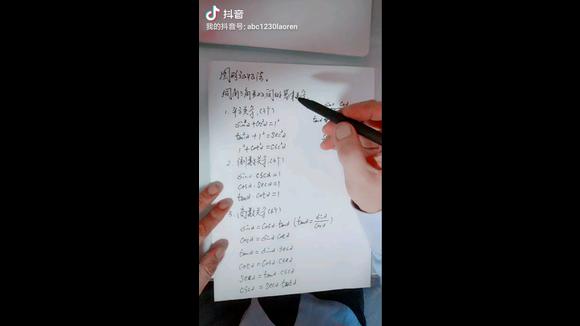 抖音
我的抖音号: abc1230laoren
图形记忆法。
同角三角函数间的基本关系
1. 平方关系.(3个)
sin²α+cos²α=1²
tan²α+1²=sec²α
1²+cot²α=csc²α
2. 倒数关系.(3个)
sinα·cscα=1
cosα·secα=1
tanα·cotα=1
3. 商数关系(6个)
sinα=cosα·tanα (tanα=sinα/cosα)
cosα=sinα·cotα
tanα=sinα·secα
cotα=cosα·cscα
secα=tanα·cscα
cscα=secα·
sinα cosα
tanα